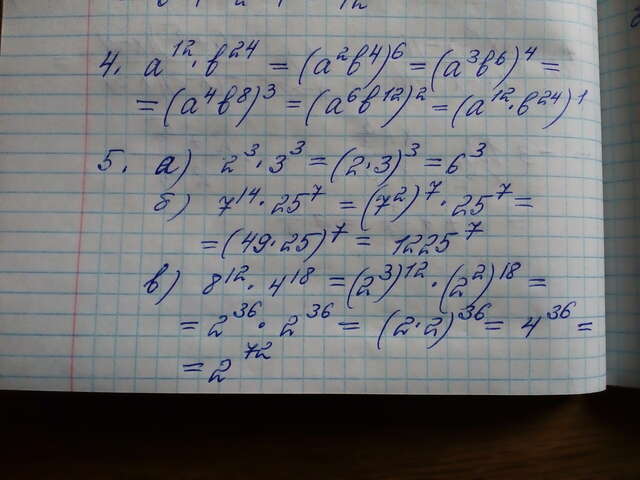 4. a¹² · b²⁴ = (a²b⁴)⁶ = (a³b⁶)⁴ =
= (a⁴b⁸)³ = (a⁶b¹²)² = (a¹² · b²⁴)¹
5. а) 2³ · 3³ = (2 · 3)³ = 6³
б) 7¹⁴ · 25⁷ = (7²)⁷ · 25⁷ =
= (49 · 25)⁷ = 1225⁷
в) 8¹² · 4¹⁸ = (2³)¹² · (2²)¹⁸ =
= 2³⁶ · 2³⁶ = (2 · 2)³⁶ = 4³⁶ =
= 2⁷²